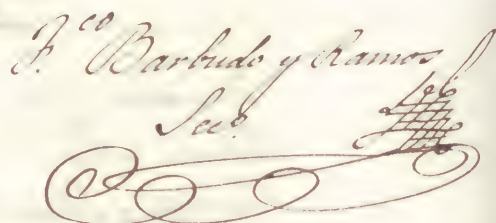 F.co Barbudo y Ramos
Sec.o